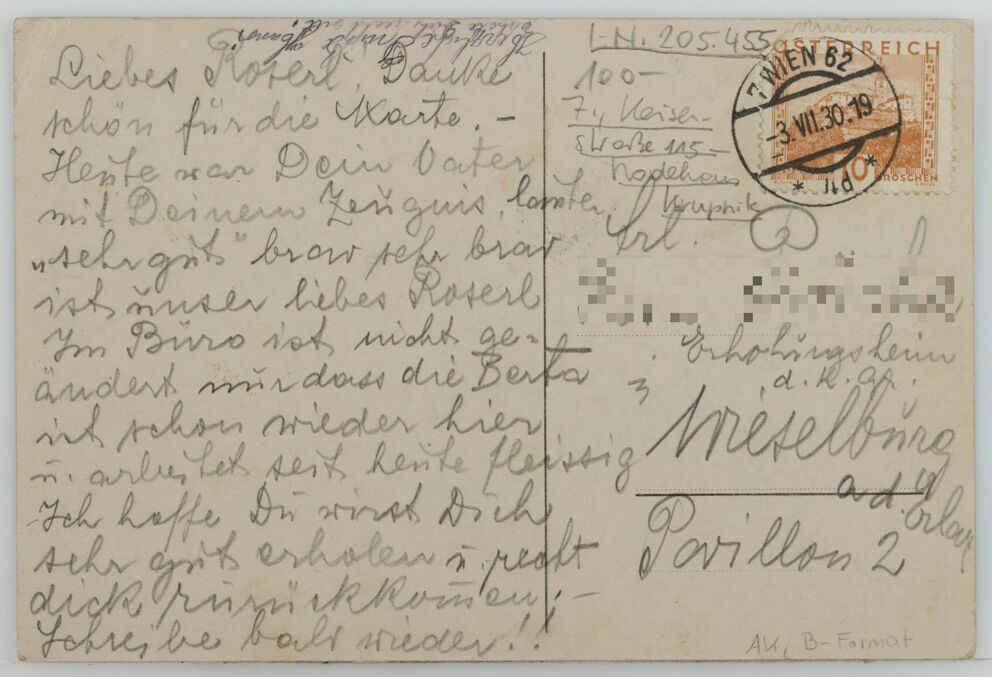 Liebes Roserl, Danke
schön für die Karte. –
Heute war Dein Vater
mit Deinem Zeugnis, lauter
„sehr gut" brav sehr brav
ist unser liebes Roserl
Im Büro ist nicht ge-
ändert nur dass die Berta
ist schon wieder hier
u. arbeitet seit heute fleissig
Ich hoffe Du wirst Dich
sehr gut erholen u. recht
dick zurückkom̅en; –
Schreibe bald wieder!!
I.N. 205.455
100–
7., Kaiser-
straße 115–
Modehaus
Krupnik
ÖSTERREICH
GROSCHEN
7 WIEN 62
–3.VII.30.19
Frl.
Erholungsheim
Wieselburg
a. d. Erlauf
Pavillon 2
AK, B-Format